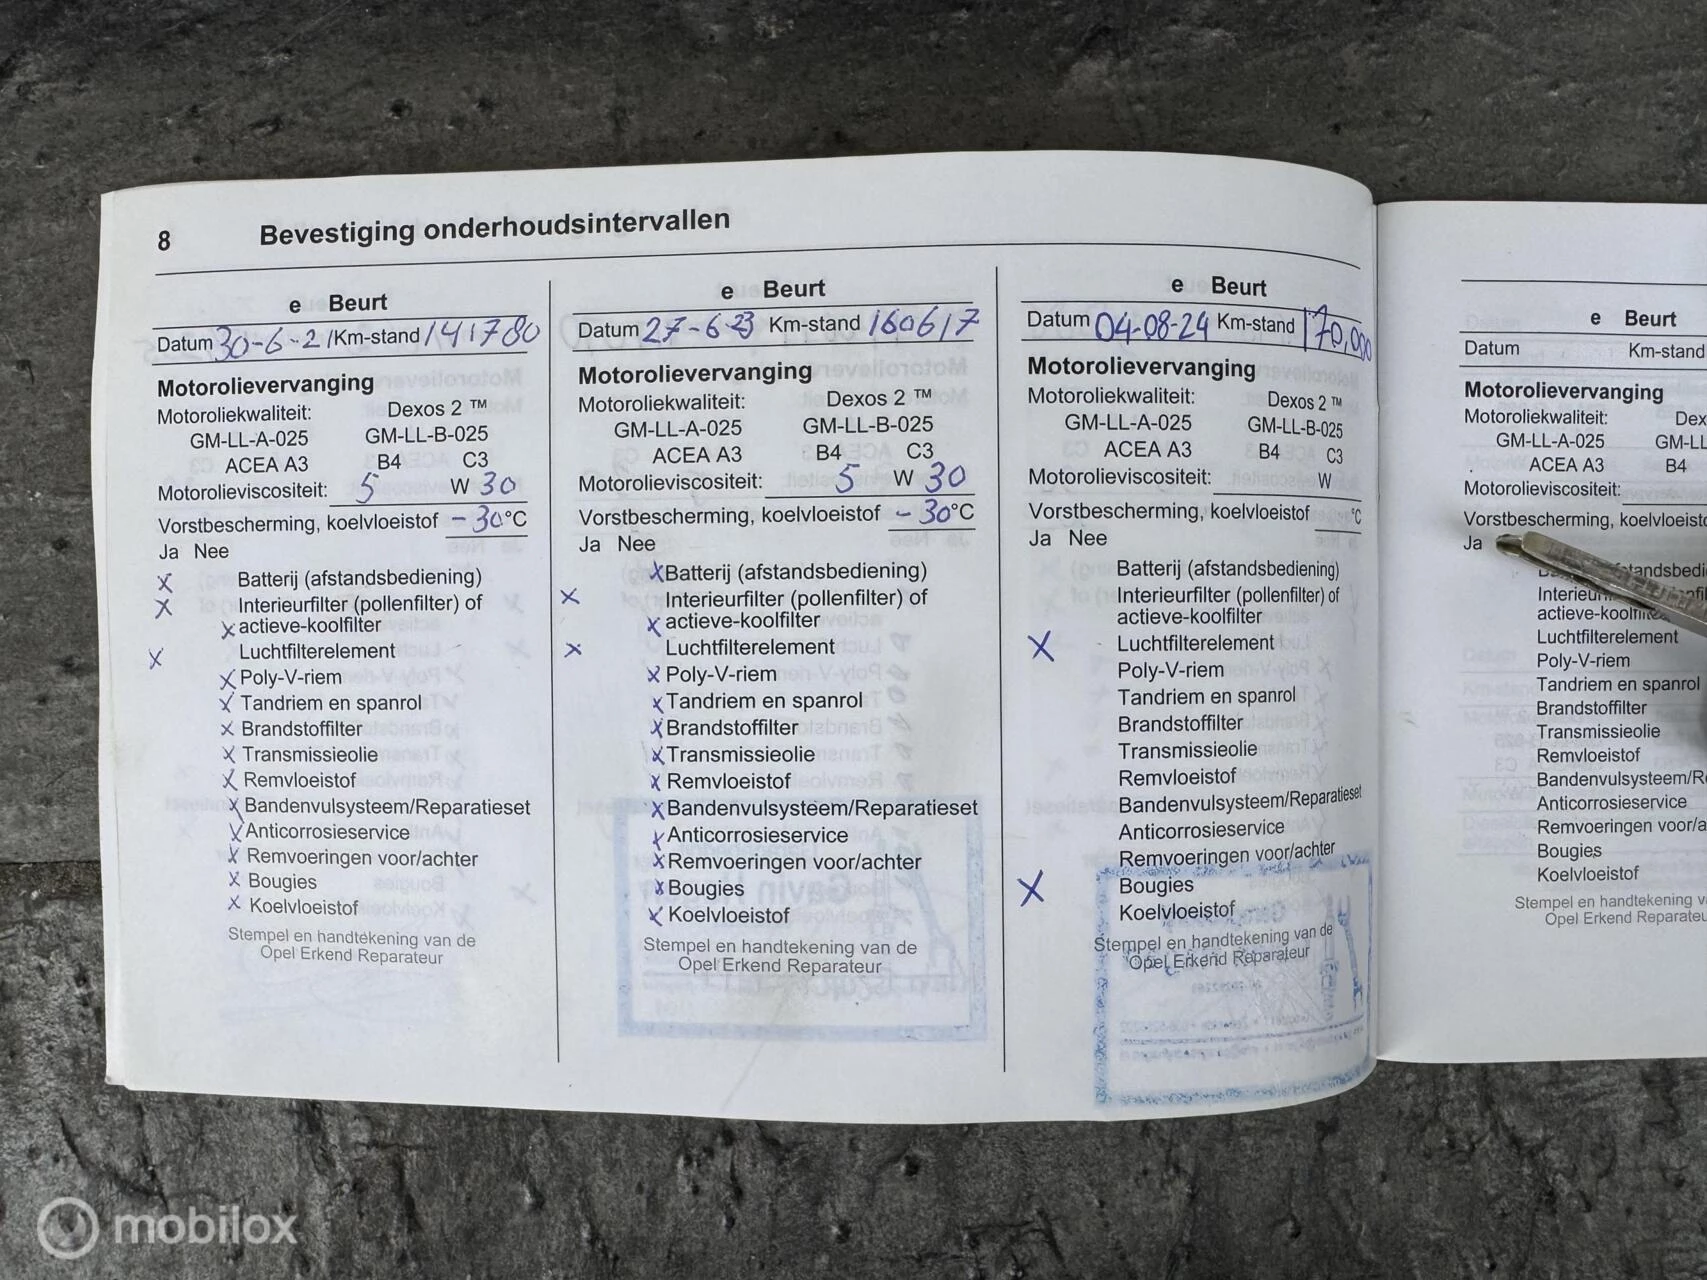 8 Bevestiging onderhoudsintervallen
e Beurt
Datum 30-6-21 Km-stand 141780
Motorolievervanging
Motoroliekwaliteit: Dexos 2 ™
GM-LL-A-025 GM-LL-B-025
ACEA A3 B4 C3
Motorolieviscositeit: 5 W 30
Vorstbescherming, koelvloeistof -30°C
Ja Nee
X Batterij (afstandsbediening)
X Interieurfilter (pollenfilter) of
X actieve-koolfilter
X Luchtfilterelement
X Poly-V-riem
X Tandriem en spanrol
X Brandstoffilter
X Transmissieolie
X Remvloeistof
X Bandenvulsysteem/Reparatieset
X Anticorrosieservice
X Remvoeringen voor/achter
X Bougies
X Koelvloeistof
Stempel en handtekening van de
Opel Erkend Reparateur
e Beurt
Datum 27-6-23 Km-stand 160617
Motorolievervanging
Motoroliekwaliteit: Dexos 2 ™
GM-LL-A-025 GM-LL-B-025
ACEA A3 B4 C3
Motorolieviscositeit: 5 W 30
Vorstbescherming, koelvloeistof -30°C
Ja Nee
X Batterij (afstandsbediening)
X Interieurfilter (pollenfilter) of
X actieve-koolfilter
X Luchtfilterelement
X Poly-V-riem
X Tandriem en spanrol
X Brandstoffilter
X Transmissieolie
X Remvloeistof
X Bandenvulsysteem/Reparatieset
X Anticorrosieservice
X Remvoeringen voor/achter
X Bougies
X Koelvloeistof
Stempel en handtekening van de
Opel Erkend Reparateur
e Beurt
Datum 04-08-24 Km-stand 170,000
Motorolievervanging
Motoroliekwaliteit: Dexos 2 ™
GM-LL-A-025 GM-LL-B-025
ACEA A3 B4 C3
Motorolieviscositeit: W
Vorstbescherming, koelvloeistof °C
Ja Nee
Batterij (afstandsbediening)
Interieurfilter (pollenfilter) of
actieve-koolfilter
X Luchtfilterelement
Poly-V-riem
Tandriem en spanrol
Brandstoffilter
Transmissieolie
Remvloeistof
Bandenvulsysteem/Reparatieset
Anticorrosieservice
Remvoeringen voor/achter
X Bougies
Koelvloeistof
Stempel en handtekening van de
Opel Erkend Reparateur
e Beurt
Datum Km-stand
Motorolievervanging
Motoroliekwaliteit: Dex
GM-LL-A-025 GM-LL
ACEA A3 B4
Motorolieviscositeit:
Vorstbescherming, koelvloeisto
Ja
Luchtfilterelement
Poly-V-riem
Tandriem en spanrol
Brandstoffilter
Transmissieolie
Remvloeistof
Bandenvulsysteem/Re
Anticorrosieservice
Remvoeringen voor/a
Bougies
Koelvloeistof
Stempel en handtekening v
Opel Erkend Reparateu
mobilox